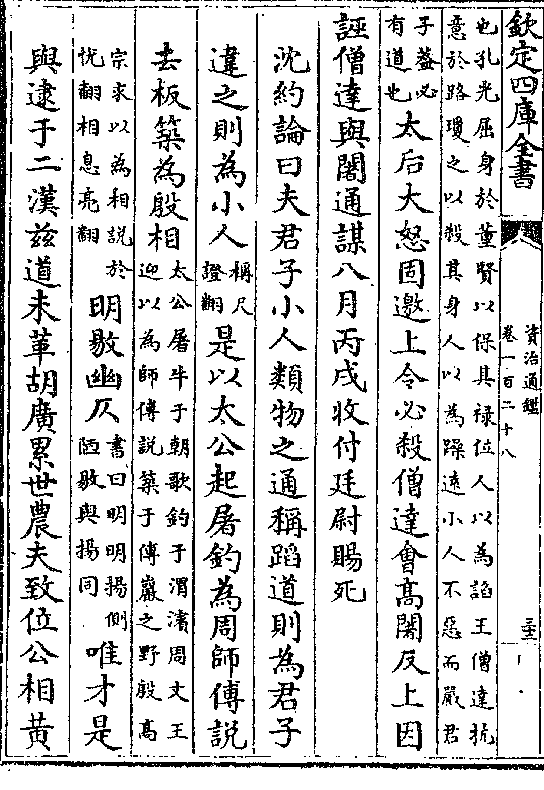 欽定四庫全書
資治通鑑
卷一百二十八
也孔光屈身於董賢以保其禄位人以為諂王僧達抗
意於路瓊之以殺其身人以為躁逺小人不惡而嚴君
子蓋必
有道也
太后大怒固邀上令必殺僧達會髙闍反上因
誣僧達與闍通謀八月丙戌收付廷尉賜死
沈約論曰夫君子小人類物之通稱蹈道則為君子
違之則為小人
稱尺
證翻
是以太公起屠釣為周師傅説
去板築為殷相
太公屠牛于朝歌釣于渭濱周文王
迎以為師傅説築于傅巖之野殷髙
宗求以為相説於
悦翻相息亮翻
明敭幽仄
書曰明明揚側
陋敭與揚同
唯才是
與逮于二漢兹道未革胡廣累世農夫致位公相黄